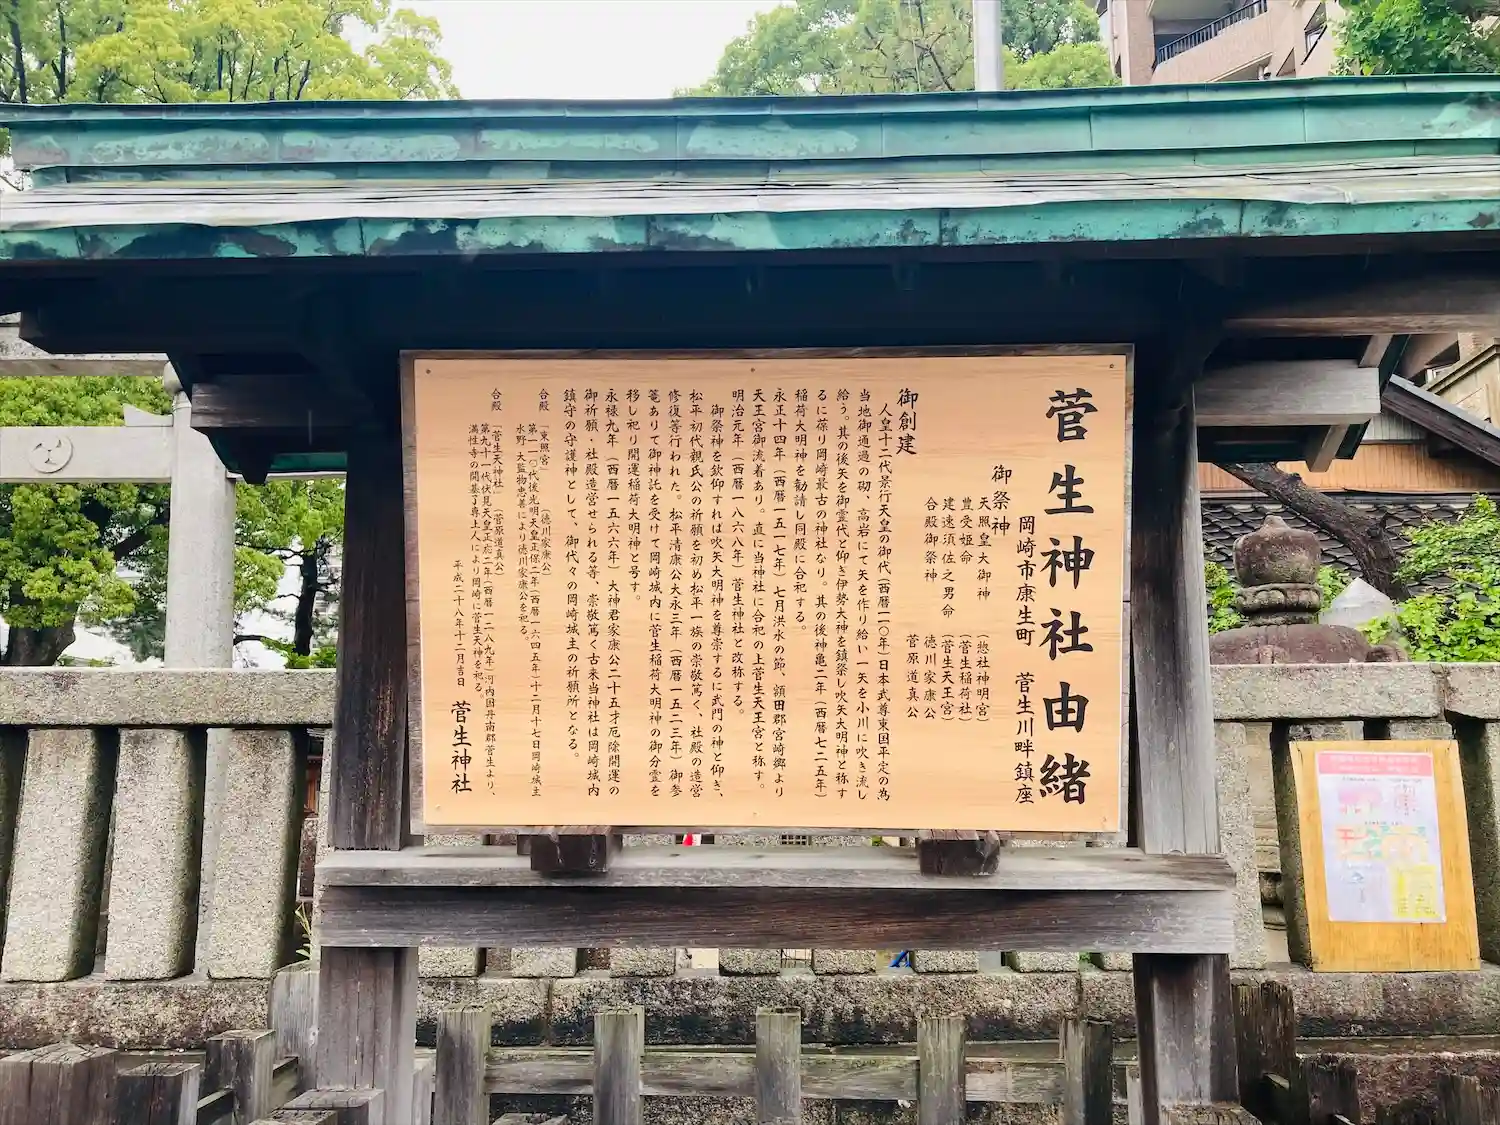 菅生神社由緒
岡崎市康生町　菅生川畔鎮座
御祭神
天照皇大御神　（惣社神明宮）
豊受姫命　（菅生稲荷社）
建速須佐之男命　（菅生天王宮）
合殿御祭神　徳川家康公
菅原道真公
御創建
人皇十二代景行天皇の御代（西暦一一〇年）日本武尊東国平定の為
当地御通過の砌、高岩にて矢を作り給い一矢を小川に吹き流し
給う。其の後矢を御霊代と仰ぎ伊勢大神を鎮祭し吹矢大明神と称す
るに葆り岡崎最古の神社なり。其の後神亀二年（西暦七二五年）
稲荷大明神を勧請し同殿に合祀する。
永正十四年（西暦一五一七年）七月洪水の節、額田郡宮崎郷より
天王宮御流着あり。直に当神社に合祀の上菅生天王宮と称す。
明治元年（西暦一八六八年）菅生神社と改称する。
御祭神を欽仰すれば吹矢大明神を尊崇するに武門の神と仰ぎ、
松平初代親氏公の祈願を初め松平一族の崇敬篤く、社殿の造営
修復等行われた。松平清康公大永三年（西暦一五二三年）御参
篭ありて御神託を受けて岡崎城内に菅生稲荷大明神の御分霊を
移し祀り開運稲荷大明神と号す。
永禄九年（西暦一五六六年）大神君家康公二十五才厄除開運の
御祈願・社殿造営せられる等、崇敬篤く古来当神社は岡崎城内
鎮守の守護神として、御代々の岡崎城主の祈願所となる。
合殿　「東照宮」（徳川家康公）
第一一〇代後光明天皇正保二年（西暦一六四五年）十二月十七日岡崎城主
水野　大監物忠善により徳川家康公を祀る。
合殿　「菅生天神社」（菅原道真公）
第九十一代伏見天皇正応二年（西暦一二八九年）河内国丹南郡菅生より、
満性寺の開基了専上人により岡崎に菅生天神を祀る。
平成二十八年十二月吉日
菅生神社